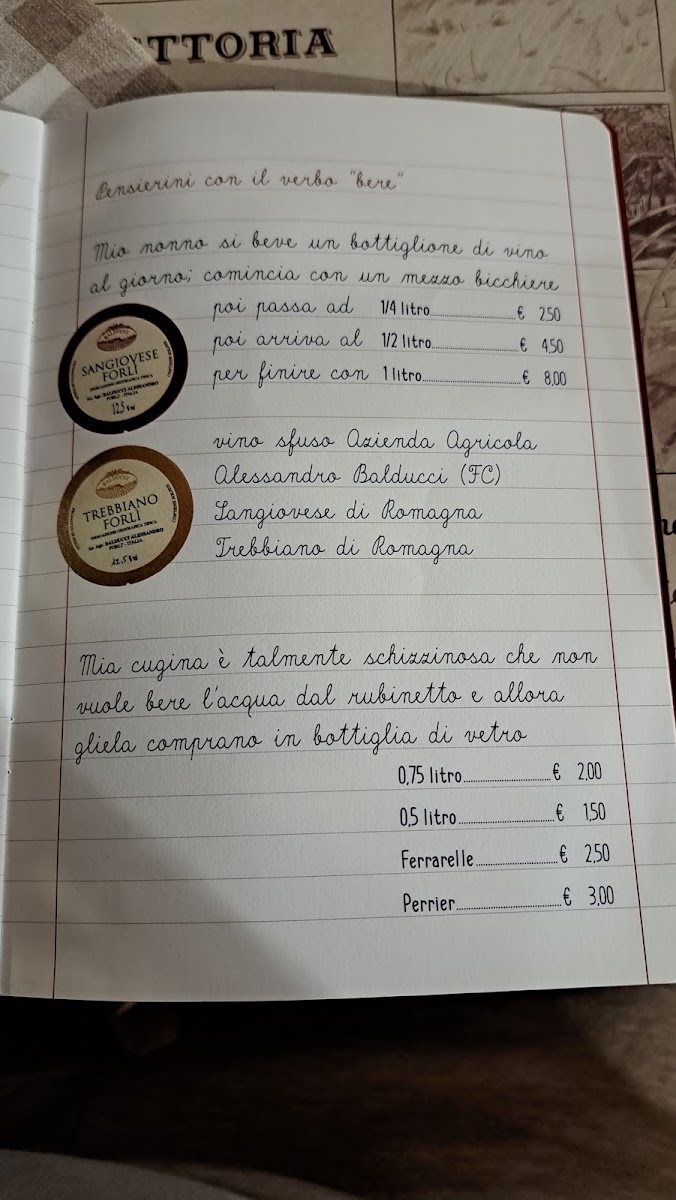 TTORIA
Pensierini con il verbo "bere"
Mio nonno si beve un bottiglione di vino
al giorno; comincia con un mezzo bicchiere
poi passa ad 1/4 litro € 2,50
poi arriva al 1/2 litro € 4,50
per finire con 1 litro € 8,00
SANGIOVESE
FORLÌ
INDICAZIONE GEOGRAFICA TIPICA
Az. Agr. BALDUCCI ALESSANDRO
FORLÌ - ITALIA
12,5 % vol
vino sfuso Azienda Agricola
Alessandro Balducci (FC)
Sangiovese di Romagna
Trebbiano di Romagna
BALDUCCI
TREBBIANO
FORLÌ
INDICAZIONE GEOGRAFICA TIPICA
Az. Agr. BALDUCCI ALESSANDRO
FORLÌ - ITALIA
12,5 % vol
Mia cugina è talmente schizzinosa che non
vuole bere l'acqua dal rubinetto e allora
gliela comprano in bottiglia di vetro
0,75 litro € 2,00
0,5 litro € 1,50
Ferrarelle € 2,50
Perrier € 3,00